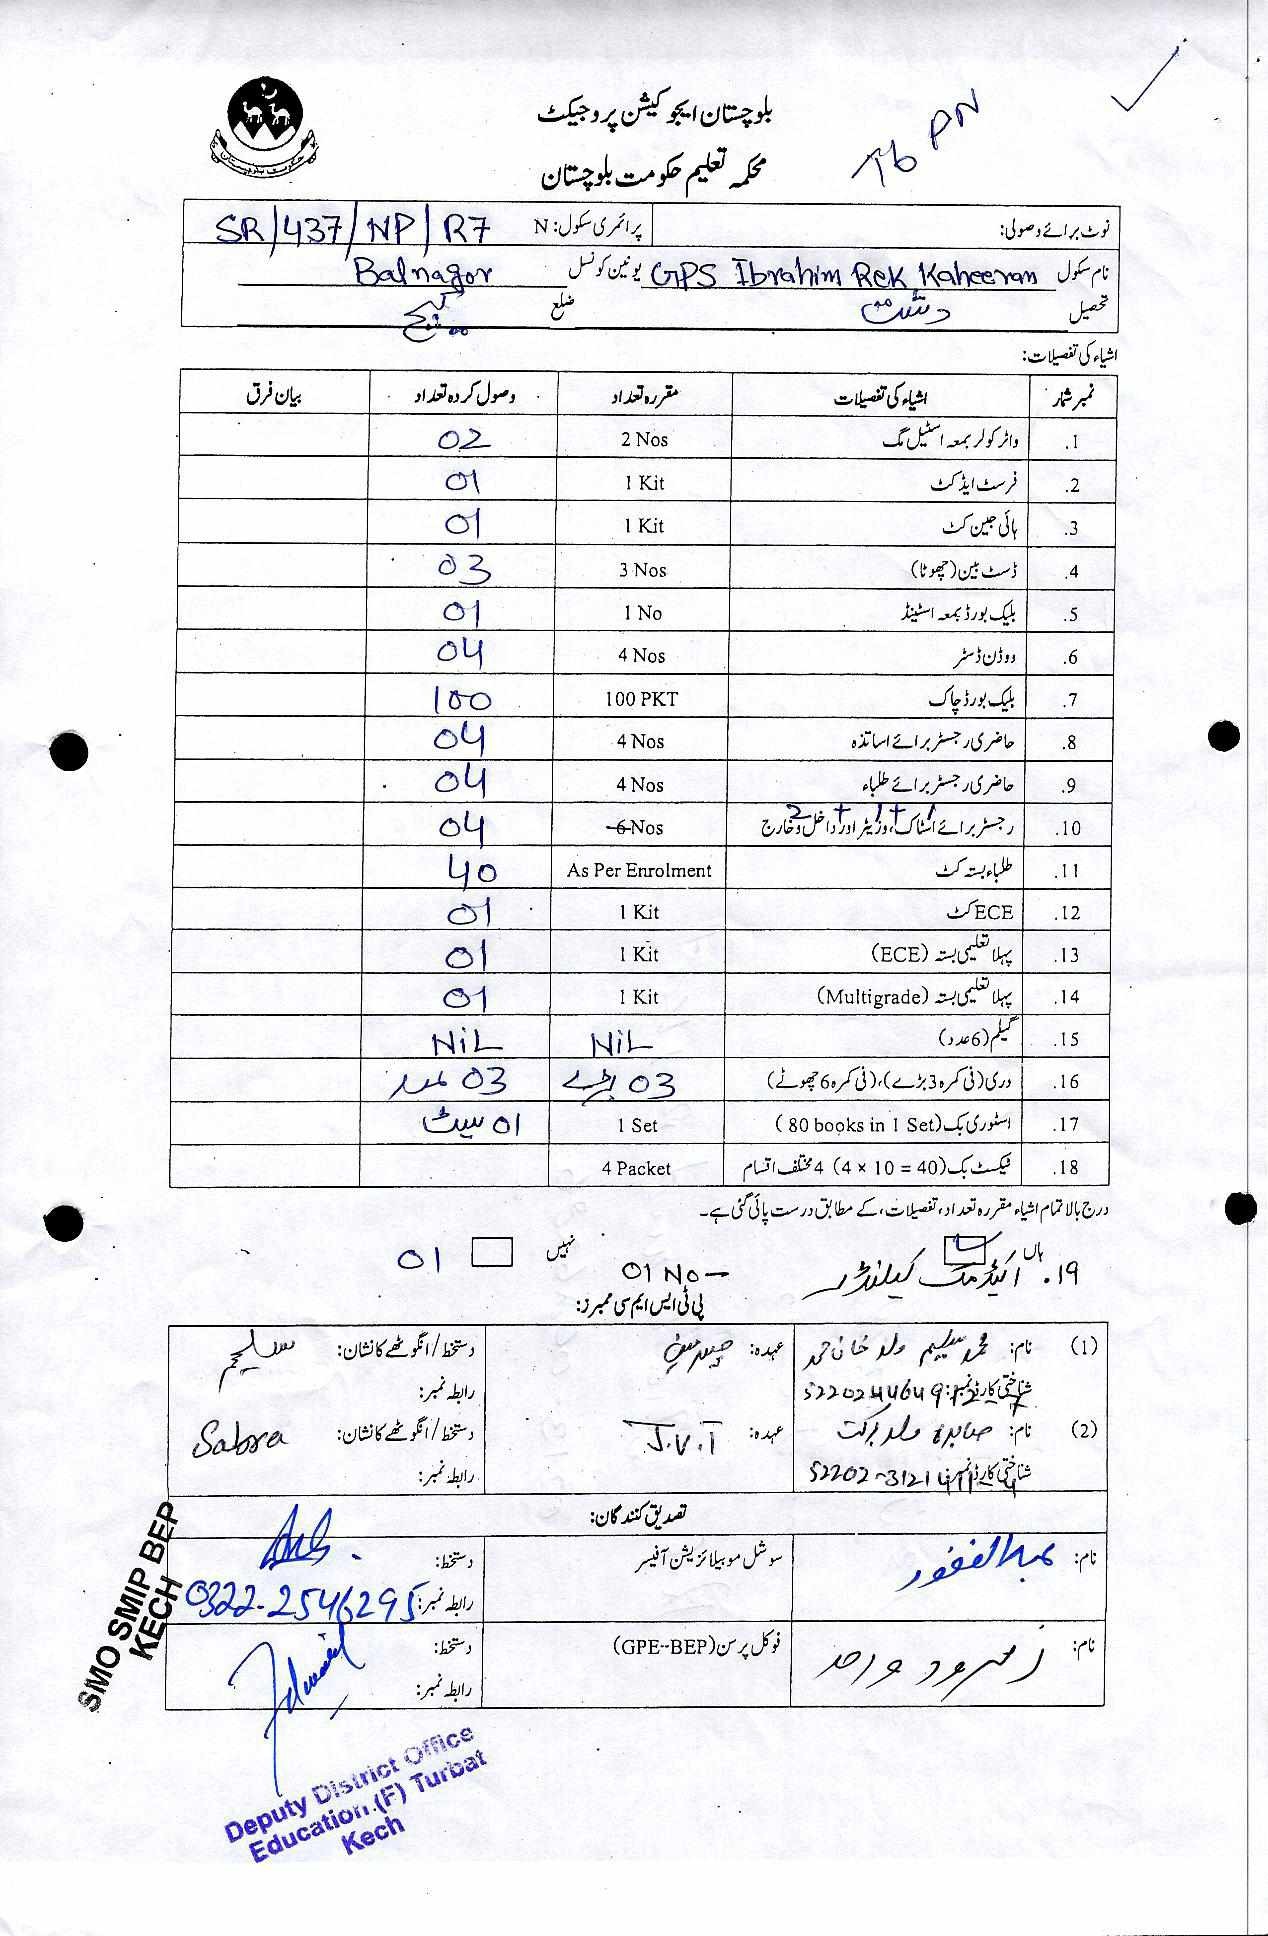 بلوچستان ایجوکیشن پروجیکٹ
محکمہ تعلیم حکومت بلوچستان
حکومت بلوچستان
Tb PN
نوٹ برائے وصولی: پرائمری سکول: N SR/437/NP/R7
نام سکول GPS Ibrahim Rek Kaheeran یونین کونسل Balnagor
تحصیل دشت ضلع کیچ
اشیاء کی تفصیلات:
نمبر شمار اشیاء کی تفصیلات مقررہ تعداد وصول کردہ تعداد بیان فرق
1. واٹر کولر بمعہ اسٹیل مگ 2 Nos 02
2. فرسٹ ایڈ کٹ 1 Kit 01
3. ہائی جین کٹ 1 Kit 01
4. ڈسٹ بین (چھوٹا) 3 Nos 03
5. بلیک بورڈ بمعہ اسٹینڈ 1 No 01
6. ووڈن ڈسٹر 4 Nos 04
7. بلیک بورڈ چاک 100 PKT 100
8. حاضری رجسٹر برائے اساتذہ 4 Nos 04
9. حاضری رجسٹر برائے طلباء 4 Nos 04
10. رجسٹر برائے اسٹاک، وزیٹر اور داخل و خارج 1+1+2 6 Nos 04
11. طلباء بستہ کٹ As Per Enrolment 40
12. ECE کٹ 1 Kit 01
13. پہلا تعلیمی بستہ (ECE) 1 Kit 01
14. پہلا تعلیمی بستہ (Multigrade) 1 Kit 01
15. گلیم (6 عدد) NiL NiL
16. دری (فی کمرہ 3 بڑے)، (فی کمرہ 6 چھوٹے) 03 بڑے 03 عدد
17. اسٹوری بک (80 books in 1 Set) 1 Set 01 سیٹ
18. ٹیکسٹ بک (4 × 10 = 40) 4 مختلف اقسام 4 Packet
درج بالا تمام اشیاء مقررہ تعداد، تفصیلات، کے مطابق درست پائی گئی ہے۔
ہاں نہیں
۱۹. اکیڈمک کیلنڈر 01 No- 01
پی ٹی ایس ایم سی ممبرز:
(1) نام: محمد سلیم ولد خان محمد عہدہ: چیئرمین دستخط / انگوٹھے کا نشان: سلیم
شناختی کارڈ نمبر: رابطہ نمبر:
(2) نام: صابرہ ولد برکت عہدہ: J.V.T دستخط / انگوٹھے کا نشان: Sabra
شناختی کارڈ نمبر: رابطہ نمبر:
تصدیق کنندگان:
نام: عبدالغفور سوشل موبیلائزیشن آفیسر دستخط:
رابطہ نمبر: 0322-2546295
نام: زمرود واحد فوکل پرسن (GPE-BEP) دستخط:
رابطہ نمبر:
SMO SMIP BEP
KECH
Deputy District Office
Education (F) Turbat
Kech